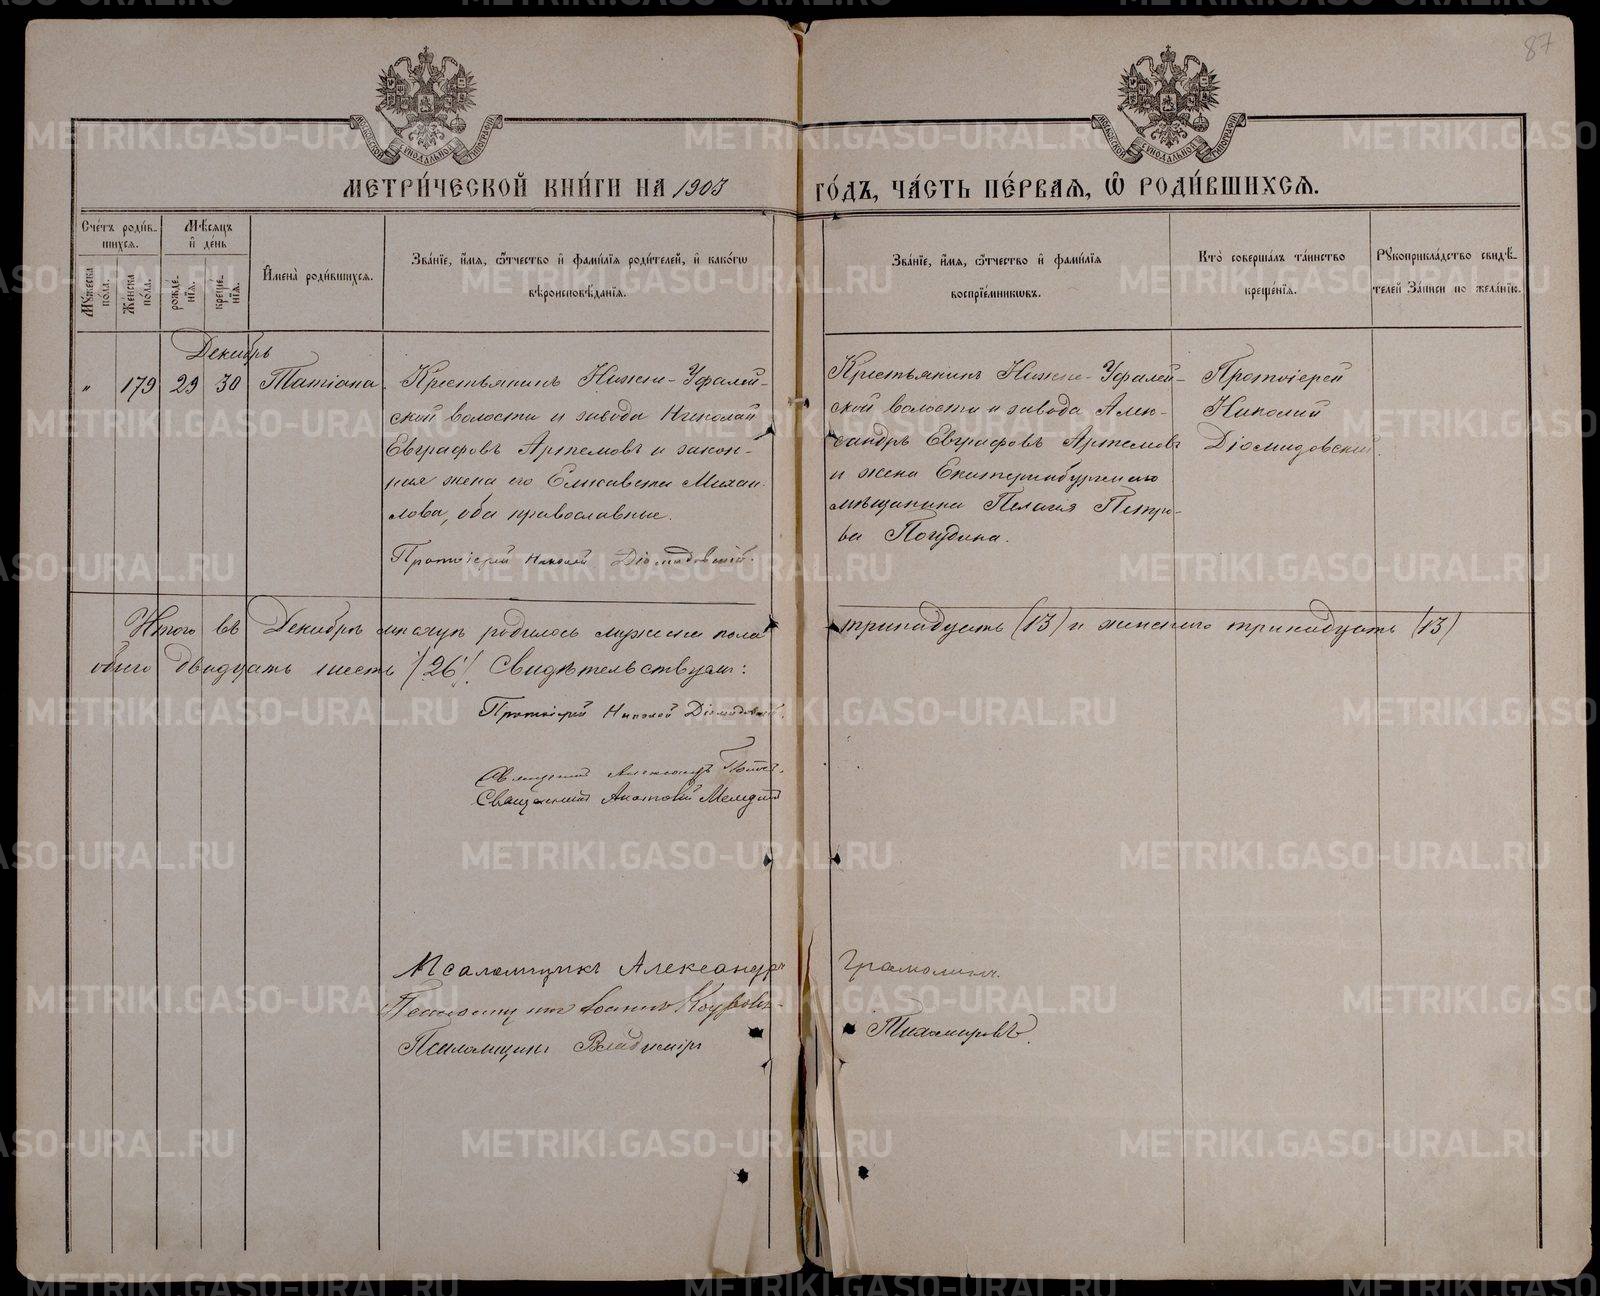 87
МОСКОВСКОЙ СУНОДАЛЬНОЙ ТИПОГРАФІИ
МОСКОВСКОЙ СУНОДАЛЬНОЙ ТИПОГРАФІИ
МЕТРИ́ЧЕСКОЙ КНИ́ГИ НА 1903 ГО́ДЪ, ЧА́СТЬ ПЕ́РВАѦ, Ѽ РОДИ́ВШИХСѦ.
Сче́тъ роди́в-
шихсѧ.
Мꙋжеска по́ла.
Же́нска по́ла.
Мѣ́сѧцъ
и҆ де́нь
рожде́-
нїѧ.
креще́-
нїѧ.
И҆мена̀ роди́вшихсѧ.
Зва́нїе, и҆́мѧ, ѻ҆́тчество и҆ фами́лїѧ роди́телей, и҆ како́гѡ
вѣроисповѣ́данїѧ.
Зва́нїе, и҆́мѧ, ѻ҆́тчество и҆ фами́лїѧ
воспрїе́мникѡвъ.
Кто̀ соверша́лъ та́инство
креще́нїѧ.
Рꙋкоприкла́дство свидѣ́-
телей за́писи по жела́нїю.
Декабрь
„ 179 29 30 Татіана.
Крестьянинъ Нижне-Уфалей-
ской волости и завода Николай
Евграфовъ Артемовъ и закон-
ная жена его Елисавета Михаи-
лова, оба православные.
Протоіерей Николай Діомидовскій.
Крестьянинъ Нижне-Уфалей-
ской волости и завода Алек-
сандръ Евграфовъ Артемовъ
и жена Екатеринбургскаго
мѣщанина Пелагія Петро-
ва Погудина.
Протоіерей
Николай
Діомидовскій.
Итого въ Декабрѣ мѣсяцѣ родилось мужеска пола тринадцать (13) и женскаго тринадцать (13)
обоего двадцать шесть (26). Свидѣтельствуемъ:
Протоіерей Николай Діомидовскій.
Священникъ Александръ
Священникъ Анатолій
Псаломщикъ Александръ Грамолинъ.
Псаломщикъ Іоаннъ
Псаломщикъ Владиміръ Тихомировъ.
METRIKI.GASO-URAL.RU